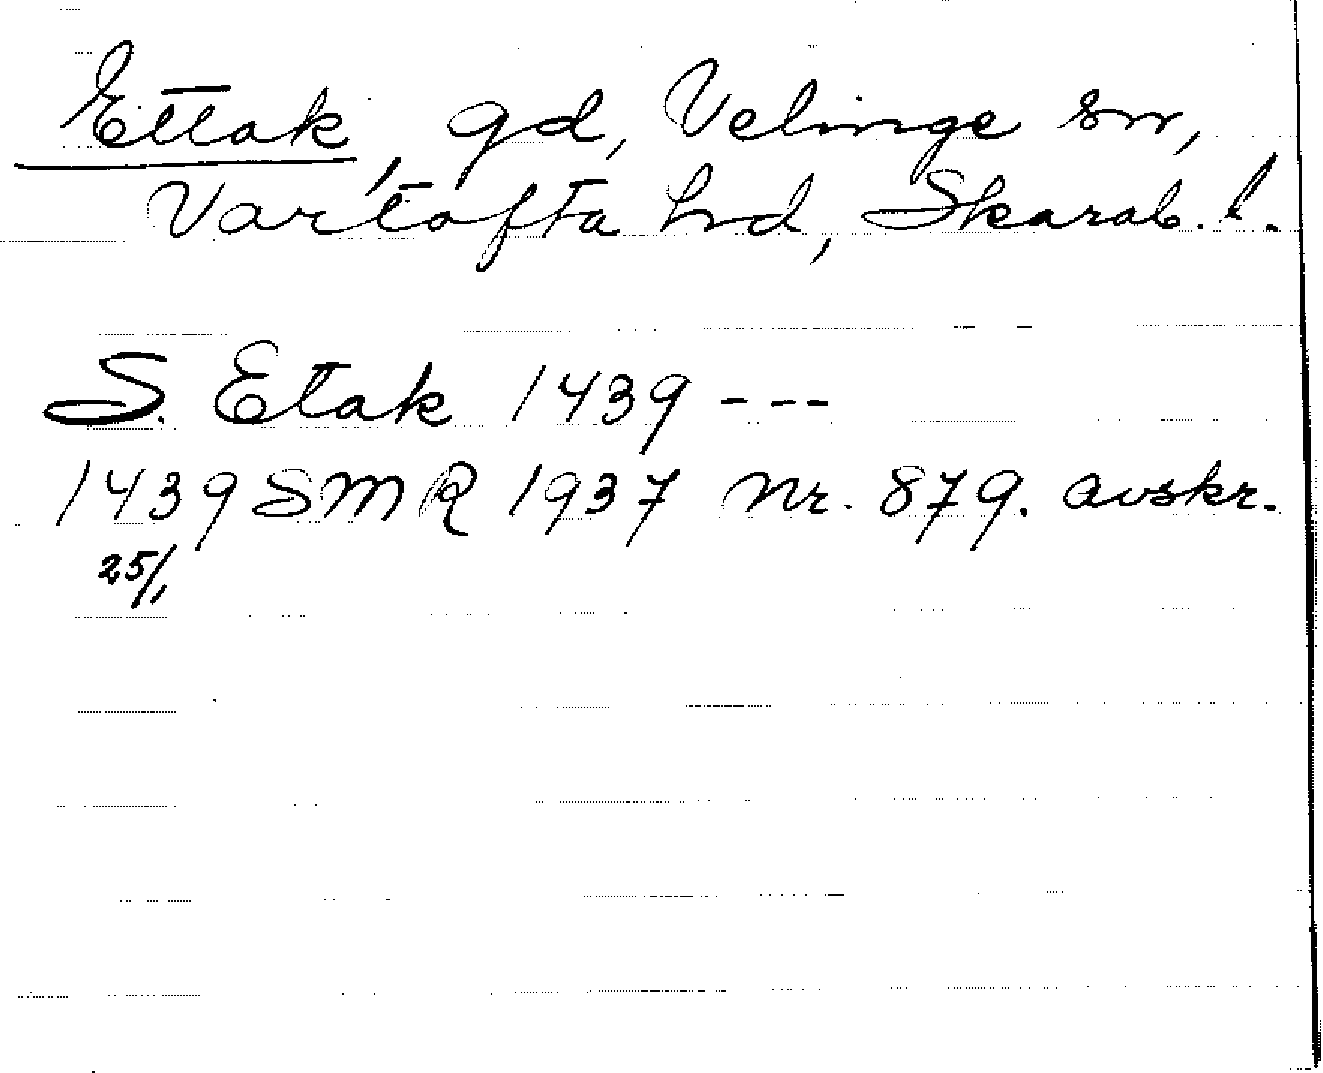 Ettak, gd, Velinge sn,
Vartofta hd, Skarab. l.
S. Etak 1439 ---
1439 SMR 1937 nr. 879. avskr.
25/1